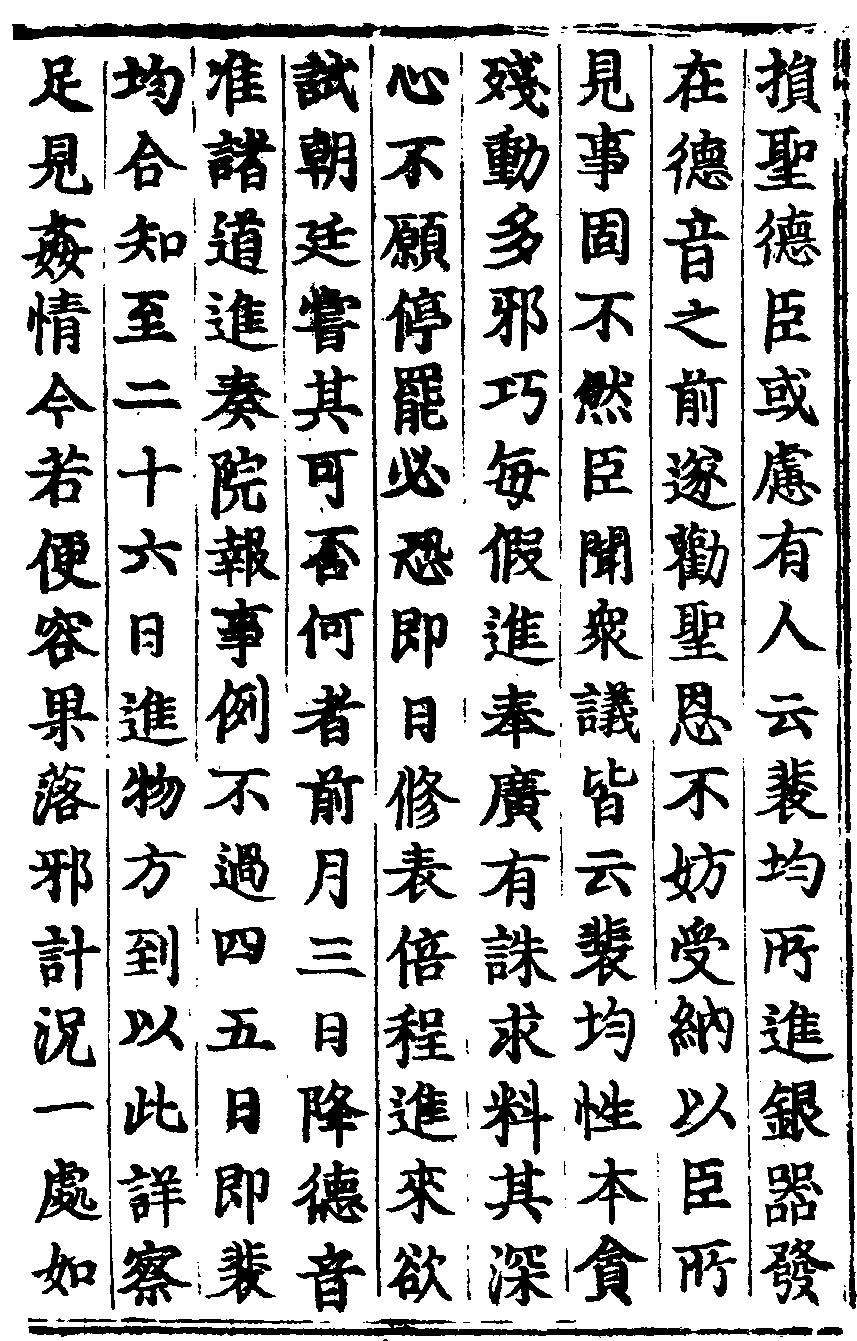 損聖德臣或慮有人云裴均所進銀器發
在德音之前遂勸聖恩不妨受納以臣所
見事固不然臣聞衆議皆云裴均性本貪
殘動多邪巧每假進奉廣有誅求料其深
心不願停罷必恐即日修表倍程進來欲
試朝廷嘗其可否何者前月三日降德音
准諸道進奏院報事例不過四五日即裴
均合知至二十六日進物方到以此詳察
足見姦情今若便容果落邪計況一處如